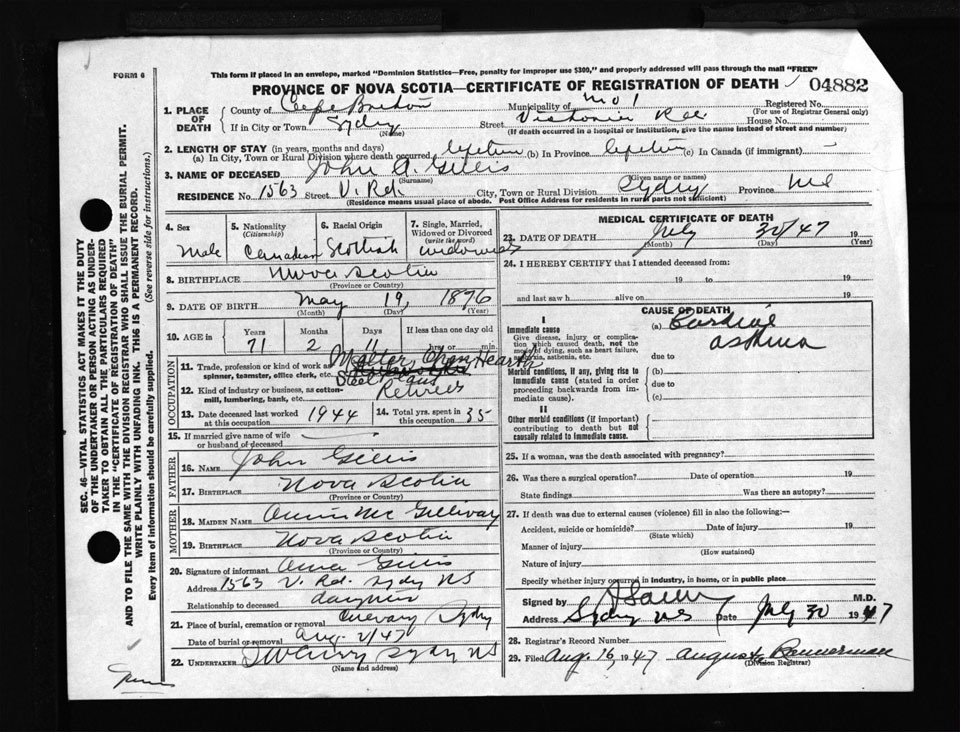 FORM 6
This form if placed in an envelope, marked "Dominion Statistics—Free, penalty for improper use $300," and properly addressed will pass through the mail "FREE"
PROVINCE OF NOVA SCOTIA—CERTIFICATE OF REGISTRATION OF DEATH 04882
SEC. 46—VITAL STATISTICS ACT MAKES IT THE DUTY
OF THE UNDERTAKER OR PERSON ACTING AS UNDER-
TAKER TO OBTAIN ALL THE PARTICULARS REQUIRED
IN THE "CERTIFICATE OF REGISTRATION OF DEATH"
AND TO FILE THE SAME WITH THE DIVISION REGISTRAR WHO SHALL ISSUE THE BURIAL PERMIT.
WRITE PLAINLY WITH UNFADING INK. THIS IS A PERMANENT RECORD.
Every item of information should be carefully supplied. (See reverse side for instructions.)
1. PLACE OF DEATH County of Cape Breton Municipality of No 1 Registered No.
(For use of Registrar General only)
If in City or Town Sydny Street Victoria Rd. House No.
(Name) (If death occurred in a hospital or institution, give the name instead of street and number)
2. LENGTH OF STAY (in years, months and days)
(a) In City, Town or Rural Division where death occurred lifetime (b) In Province lifetime (c) In Canada (if immigrant) —
3. NAME OF DECEASED John A. Gillis
(Surname) (Given name or names)
RESIDENCE No. 1563 Street V. Rd. City, Town or Rural Division Sydny Province NS
(Residence means usual place of abode. Post Office Address for residents in rural parts not sufficient)
4. Sex Male
5. Nationality (Citizenship) Canadian
6. Racial Origin Scottish
7. Single, Married, Widowed or Divorced (write the word) widower
8. BIRTHPLACE Nova Scotia
(Province or Country)
9. DATE OF BIRTH May 19, 1876
(Month) (Day) (Year)
10. AGE in Years Months Days If less than one day old
71 2 11 hrs or min.
OCCUPATION
11. Trade, profession or kind of work as spinner, teamster, office clerk, etc. Melter Open Hearth
12. Kind of industry or business, as cotton-mill, lumbering, bank, etc. Steel Plant Retired
13. Date deceased last worked at this occupation 1944 14. Total yrs. spent in this occupation 35
15. If married give name of wife or husband of deceased —
FATHER
16. NAME John Gillis
17. BIRTHPLACE Nova Scotia
(Province or Country)
MOTHER
18. MAIDEN NAME Annie Mc Gillivary
19. BIRTHPLACE Nova Scotia
(Province or Country)
20. Signature of informant Anna Gillis
Address 1563 V. Rd. Sydny NS
Relationship to deceased daughter
21. Place of burial, cremation or removal Calvary Sydny
Date of burial or removal Aug. 2/47
22. UNDERTAKER Sydny NS
(Name and address)
MEDICAL CERTIFICATE OF DEATH
23. DATE OF DEATH July 30/47 19
(Month) (Day) (Year)
24. I HEREBY CERTIFY that I attended deceased from:
19 to 19
and last saw h alive on 19
CAUSE OF DEATH
I
Immediate cause
Give disease, injury or complication which caused death, not the mode of dying, such as heart failure, asphyxia, asthenia, etc.
(a) Cardiac asthma
due to
Morbid conditions, if any, giving rise to immediate cause (stated in order proceeding backwards from immediate cause).
(b)
due to
(c)
II
Other morbid conditions (if important) contributing to death but not causally related to immediate cause.
25. If a woman, was the death associated with pregnancy?
26. Was there a surgical operation? Date of operation 19
State findings Was there an autopsy?
27. If death was due to external causes (violence) fill in also the following:—
Accident, suicide or homicide? Date of injury 19
(State which)
Manner of injury
(How sustained)
Nature of injury
Specify whether injury occurred in industry, in home, or in public place
Signed by M.D.
Address Sydny NS Date July 30 1947
28. Registrar's Record Number
29. Filed Aug. 16, 1947 August Bannerman
(Division Registrar)